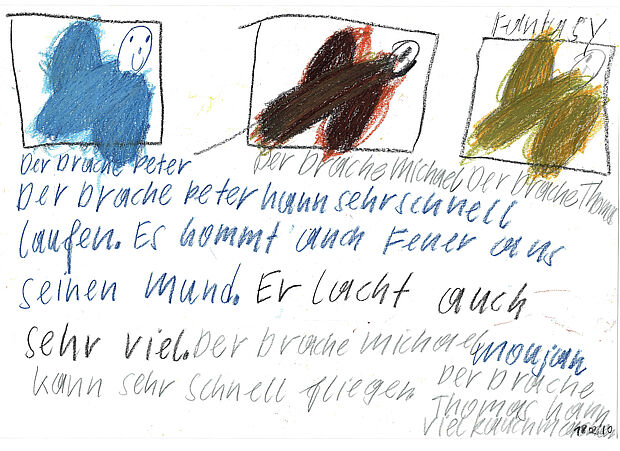 Fantasy
Der Drache Peter
Der Drache Michael
Der Drache Thomas
Der Drache Peter kann sehr schnell
laufen. Es kommt auch Feuer aus
seinen Mund. Er lacht auch
sehr viel. Der Drache Michael
kann sehr schnell fliegen
Der Drache
Thomas kann
viel rauch machen